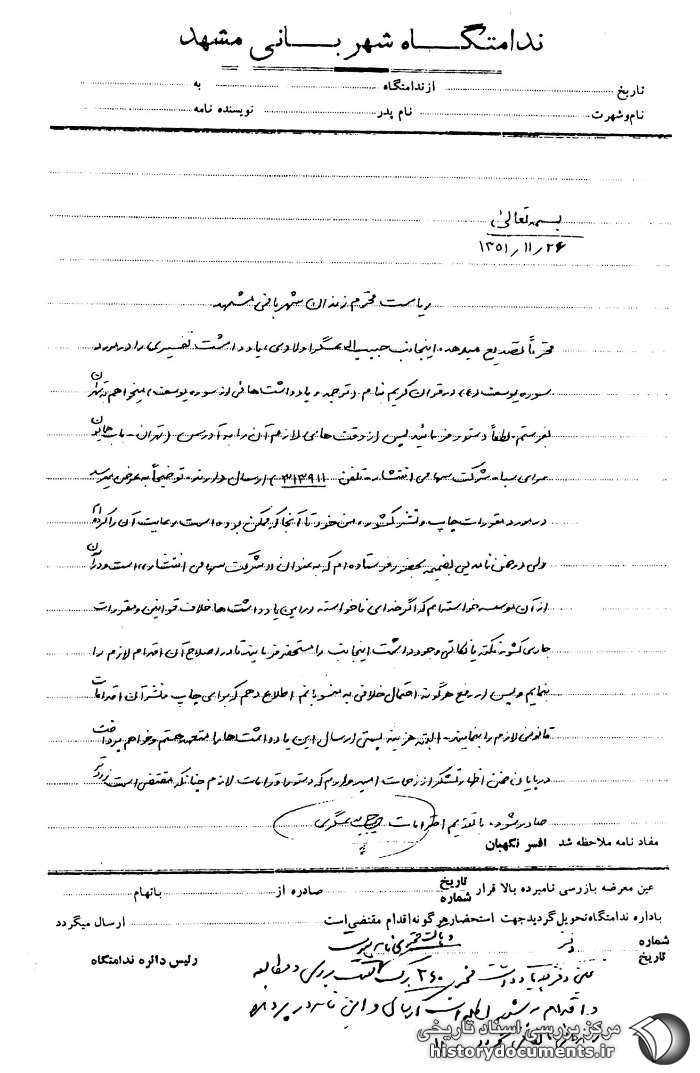 ندامتگاه شهربانی مشهد
تاریخ از ندامتگاه به
نام و شهرت نام پدر نویسنده نامه
بسمه تعالی
۱۳۵۱/۱۱/۲۶
ریاست محترم زندان شهربانی مشهد
محترماً تصدیع میدهد. اینجانب حبیب اله عسگراولادی، یادداشت تفسیری را در مورد
سوره یوسف (ع) در قرآن کریم بنام (ترجمه و یادداشت هائی از سوره یوسف) میخواهم به تهران
بفرستم. لطفاً دستور فرمائید پس از دقت های لازم آن را به آدرس (تهران - باب همایون
سرای سپا - شرکت سهامی انتشار - تلفن ۳۱۳۹۱۱) ارسال دارند. توضیحاً به عرض میرسد
در مورد مقررات چاپ و نشر کشور، من خود تا آنجا که ممکن بوده است رعایت آن را کرده ام
ولی در ضمن نامه یی بضمیمه بحضور فرستاده ام که به عنوان «شرکت سهامی انتشار» است و در آن
از آن موسسه خواسته ام که اگر خدای ناخواسته در این یادداشت ها خلاف قوانین و مقررات
جاری کشور نکته یا نکاتی وجود داشت اینجانب را مستحضر فرمایند تا در اصلاح آن اقدام لازم را
بنمایم و پس از رفع هرگونه احتمال خلافی به منسوبانم اطلاع دهم که برای چاپ و نشر آن اقدامات
قانونی لازم را بنمایند. البته هزینه پستی ارسال این یادداشت ها را متعهد هستم و خواهم پرداخت
در پایان ضمن اظهار تشکر از زحمات امیدوارم که دستورات لازم چنانکه مقتضی است زودتر
صادر شود. با تقدیم احترامات عسگری
مفاد نامه ملاحظه شد افسر نگهبان
عین معرضه بازرسی نامبرده بالا قرار تاریخ شماره صادره از باتهام
باداره ندامتگاه تحویل گردید جهت استحضار هرگونه اقدام مقتضی است ارسال میگردد
شماره
تاریخ رئیس دائره ندامتگاه
برگ بررسی و مطالعه
مرکز بررسی اسناد تاریخی
historydocuments.ir